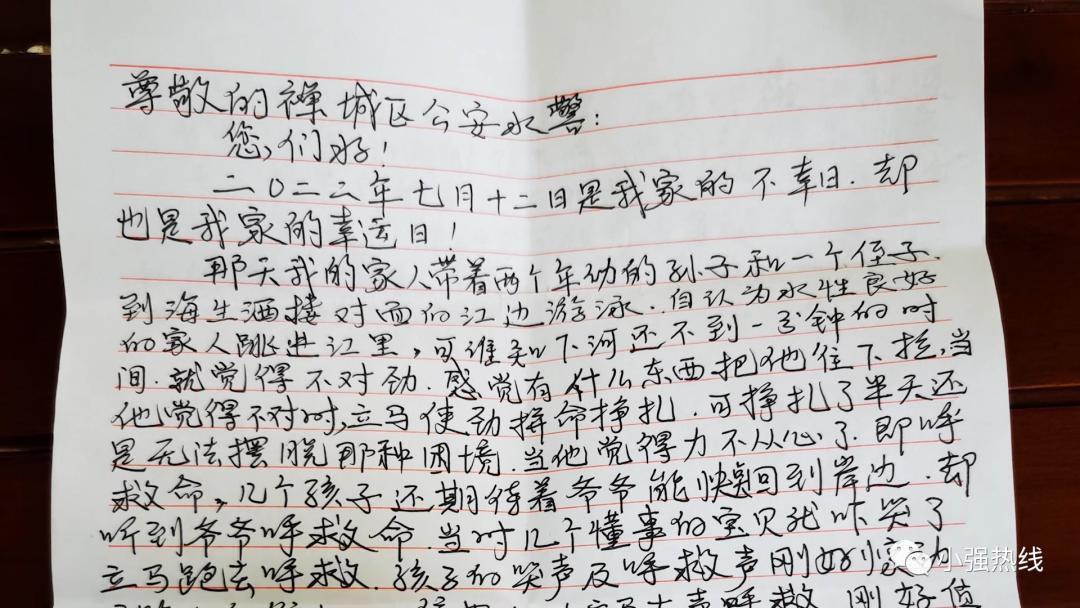 尊敬的禅城区公安水警：
您们好！
二〇二二年七月十二日是我家的不幸日.却
也是我家的幸运日！
那天我的家人带着两个年幼的孙子和一个侄子.
到海生酒楼对面的江边游泳.自认为水性良好
的家人跳进江里，可谁知下河还不到一分钟的时
间.就觉得不对劲.感觉有什么东西把他住下拉，当
他觉得不对时，立马使劲拼命挣扎.可挣扎了半天还
是无法摆脱那种困境.当他觉得力不从心了.即呼
救命，几个孩子还期待着爷爷能快回到岸边.却
听到爷爷呼救命.当时几个懂事的宝贝就吓哭了
立马跑去呼救.孩子的哭声及呼救声刚好惊动
大声呼救.刚好值
小强热线